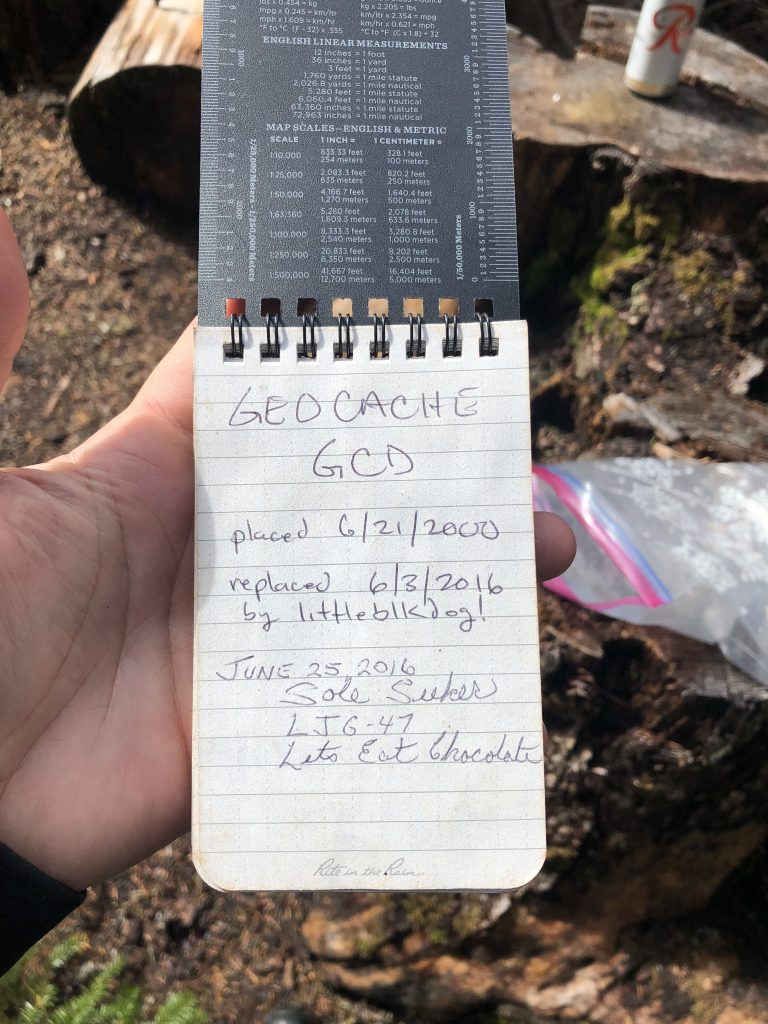 lbs x 0.454 = kg kg x 2.205 = lbs
mpg x 0.245 = km/ltr km/ltr x 2.354 = mpg
mph x 1.609 = km/hr km/hr x 0.621 = mph
°F to °C (F - 32) x .555 °C to °F (C x 1.8) + 32
ENGLISH LINEAR MEASUREMENTS
12 inches = 1 foot
36 inches = 1 yard
3 feet = 1 yard
1,760 yards = 1 mile statute
2,026.8 yards = 1 mile nautical
5,280 feet = 1 mile statute
6,060.4 feet = 1 mile nautical
63,360 inches = 1 mile statute
72,963 inches = 1 mile nautical
MAP SCALES—ENGLISH & METRIC
SCALE 1 INCH = 1 CENTIMETER =
1:10,000 833.33 feet 328.1 feet
254 meters 100 meters
1:25,000 2,083.3 feet 820.2 feet
635 meters 250 meters
1:50,000 4,166.7 feet 1,640.4 feet
1,270 meters 500 meters
1:63,360 5,280 feet 2,078 feet
1,609.3 meters 633.6 meters
1:100,000 8,333.3 feet 3,280.8 feet
2,540 meters 1,000 meters
1:250,000 20,833 feet 8,202 feet
6,350 meters 2,500 meters
1:500,000 41,667 feet 16,404 feet
12,700 meters 5,000 meters
1/50,000 Meters
3000
2000
1000
R
GEOCACHE
GCD
placed 6/21/2000
replaced 6/3/2016
by littleblkdog!
JUNE 25, 2016
Sole Seeker
LJG-47
Lets Eat Chocolate
Rite in the Rain